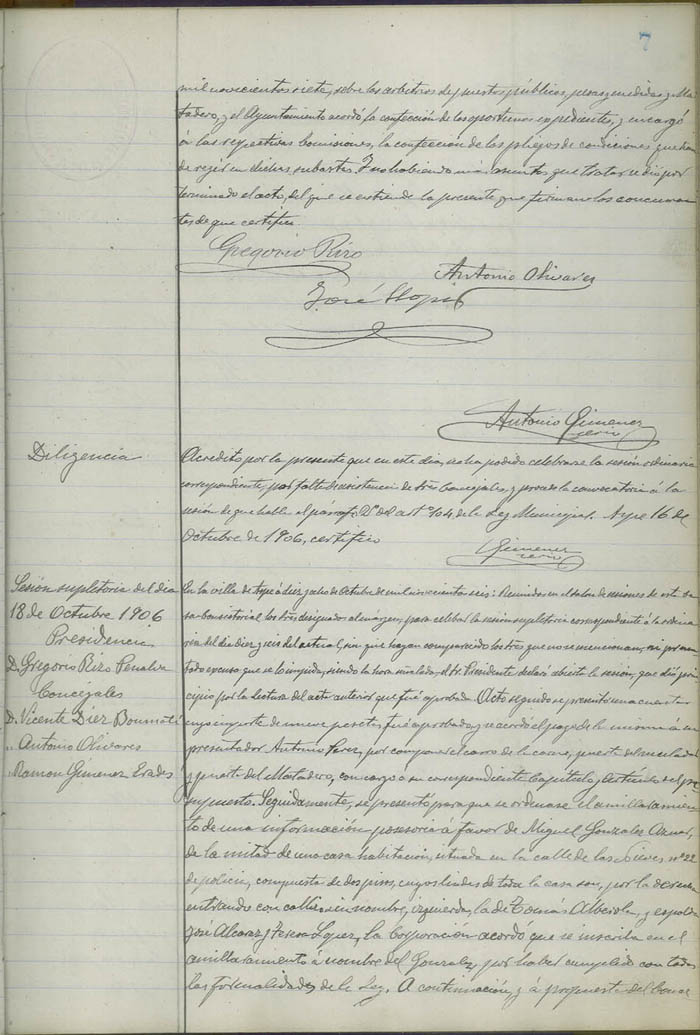 7
mil novecientos siete, sobre los arbitrios de puestos públicos, pesas y medidas y Ma-
tadero, y el Ayuntamiento acordó la confección de los oportunos expedientes, y encargó
á las respectivas Comisiones, la confección de los pliegos de condiciones que han
de regir en dichas subastas. Y no habiendo mas asuntos que tratar se dió por
terminado el acto, del que se extiende la presente que firman los concurren-
tes de que certifico.
Gregorio Rizo
Antonio Olivares
José Llopis
Antonio Gimenez
serio
Diligencia
Acredito por la presente que en este dia, no ha podido celebrarse la sesión ordinaria
correspondiente, por falta de asistencia de tres Concejales, y provee la convocatoria á la
sesión de que habla el parrafo 2º del artº 104, de la Ley Municipal. Aspe 16 de
Octubre de 1906, certifico
Gimenez
serio
Sesión supletoria del dia
18 de Octubre 1906
Presidencia
D. Gregorio Rizo Penalva
Concejales
D. Vicente Diez Boumati
" Antonio Olivares
" Ramon Gimenez Erades
En la villa de Aspe á diez y ocho de Octubre de mil novecientos seis: Reunidos en el salon de sesiones de esta Ca-
sa Consistorial los Sres designados al márgen, para celebrar la sesión supletoria correspondiente á la ordina-
ria del dia diez y seis del actual, sin que hayan comparecido los Sres que no se mencionan, ni presen-
tado excusa que se lo impida, siendo la hora señalada, el Sr. Presidente declaró abierta la sesión, que dió prin-
cipio por la lectura del acta anterior que fué aprobada. Acto seguido se presentó una cuenta
cuyo importe de nueve pesetas, fué aprobada, y se acordó el pago de la misma á su
presentador Antonio Perez, por componer el carro de la carne, puerta del
y puerta del Matadero, con cargo a su correspondiente Capítulo y Artículo del pre-
supuesto. Seguidamente, se presentó para que se ordenase el amillaramien-
to de una información posesoria á favor de Miguel Gonzalez Aznar,
de la mitad de una casa habitación, situada en la calle de las Nieves nº 22
de policia, compuesta de dos pisos, cuyos lindes de toda la casa son, por la derecha
entrando con calle sin nombre, izquierda, la de Tomás Alberola, y espalda
José Alcaraz y Teresa Lopez, La Corporación acordó que se inscriba en el
amillaramiento á nombre del Gonzalez, por haber cumplido con todas
las formalidades de la Ley. A continuación, y á propuesta del Conce-